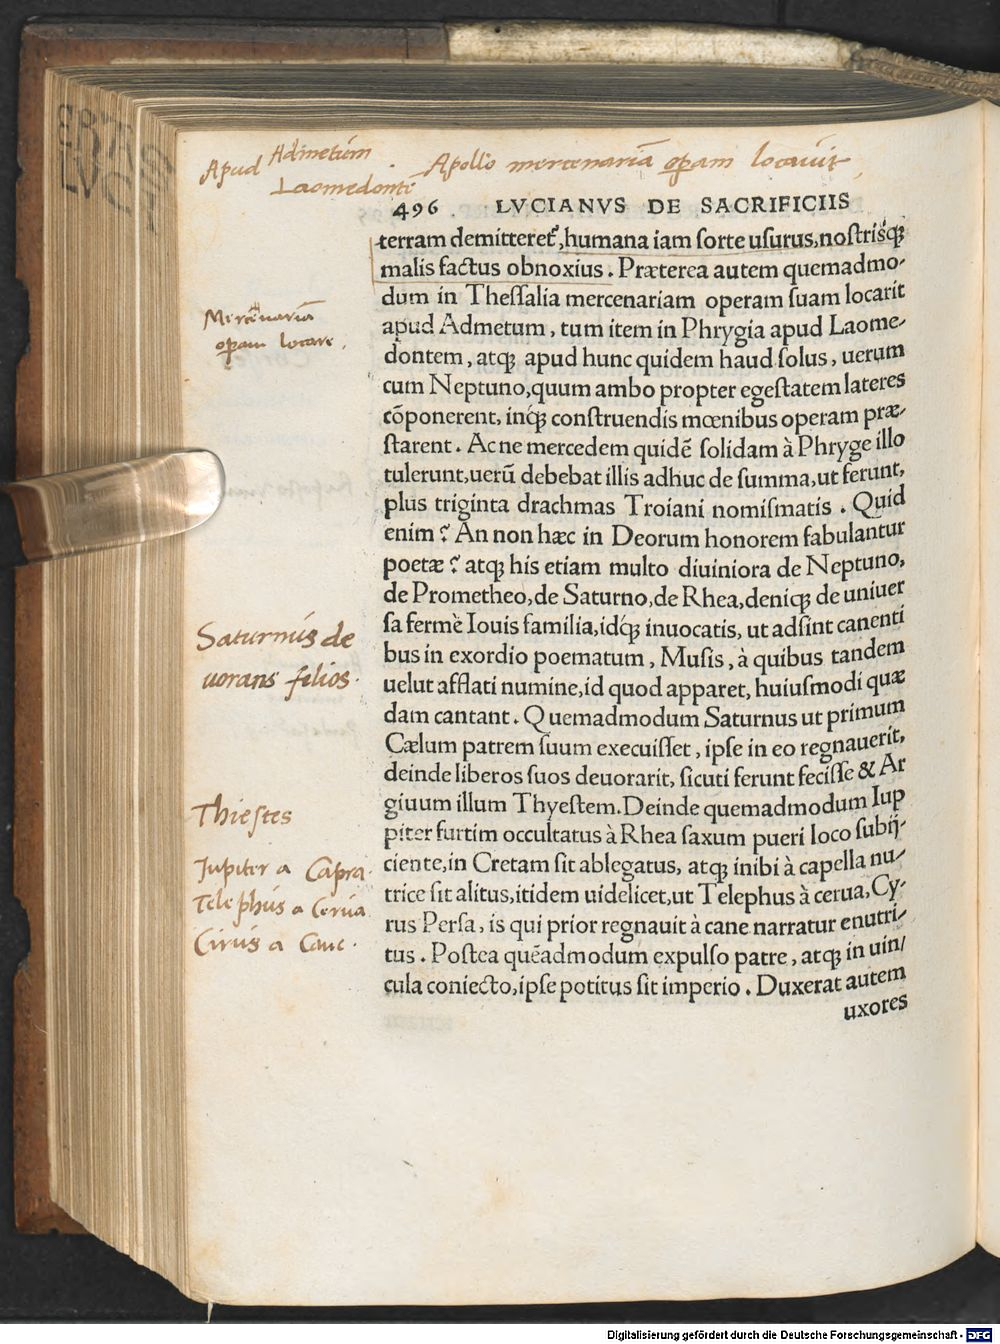 Apud Admetum . Apollo mercenariā oꝑam locauit
Laomedontē
496 LVCIANVS DE SACRIFICIIS
terram demitteret̃, humana iam sorte usurus, nostrisq́ꝫ
malis factus obnoxius. Præterea autem quemadmo-
dum in Thessalia mercenariam operam suam locarit
apud Admetum, tum item in Phrygia apud Laome-
dontem, atqꝫ apud hunc quidem haud solus, uerum
cum Neptuno, quum ambo propter egestatem lateres
cõponerent, inq́ꝫ construendis mœnibus operam præ-
starent. Ac ne mercedem quidẽ solidam à Phryge illo
tulerunt, uerũ debebat illis adhuc de summa, ut ferunt,
plus triginta drachmas Troiani nomismatis. Quid
enim? An non hæc in Deorum honorem fabulantur
poetæ? atqꝫ his etiam multo diuiniora de Neptuno,
de Prometheo, de Saturno, de Rhea, deniqꝫ de uniuer
sa fermè Iouis familia, idq́ꝫ inuocatis, ut adsint canenti
bus in exordio poematum, Musis, à quibus tandem
uelut afflati numine, id quod apparet, huiusmodi quæ
dam cantant. Quemadmodum Saturnus ut primum
Cælum patrem suum execuisset, ipse in eo regnauerit,
deinde liberos suos deuorarit, sicuti ferunt fecisse & Ar
giuum illum Thyestem. Deinde quemadmodum Iup
piter furtim occultatus à Rhea saxum pueri loco subij-
ciente, in Cretam sit ablegatus, atqꝫ inibi à capella nu-
trice sit alitus, itidem uidelicet, ut Telephus à cerua, Cy-
rus Persa, is qui prior regnauit à cane narratur enutri-
tus. Postea quẽadmodum expulso patre, atqꝫ in uin/
cula coniecto, ipse potitus sit imperio. Duxerat autem
uxores
Mercenariā
oꝑam locare.
Saturnus de
uorans filios.
Thiestes
Jupiter a Capra.
Telephus a Cerua
Cirus a Cane.
Digitalisierung gefördert durch die Deutsche Forschungsgemeinschaft - DFG